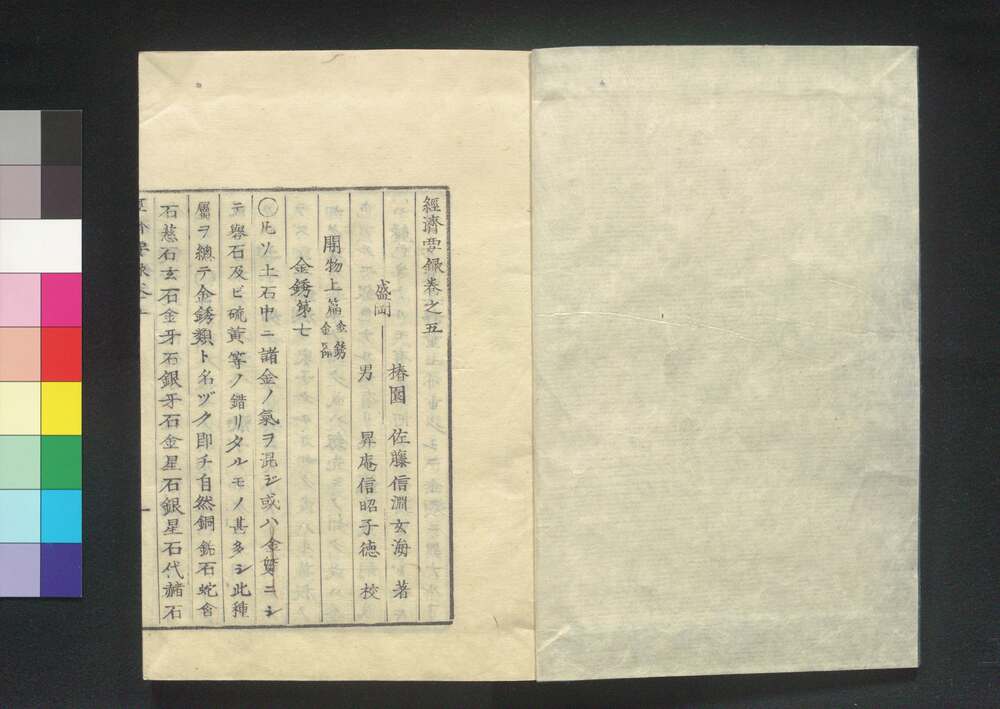 經濟要録卷之五
盛岡 椿園 佐藤信淵玄海 著
男 昇庵信昭子德 校
開物上篇 金銹
金銹第七
〇凡ソ土石中ニ諸金ノ氣ヲ混ジ或ハ金質ニシ
テ礜石及ビ硫黃等ノ錯リタルモノ甚多シ此種
屬ヲ總テ金銹類ト名ヅク即チ自然銅 石蛇含
石慈石玄石金牙石銀牙石金星石銀星石代赭石